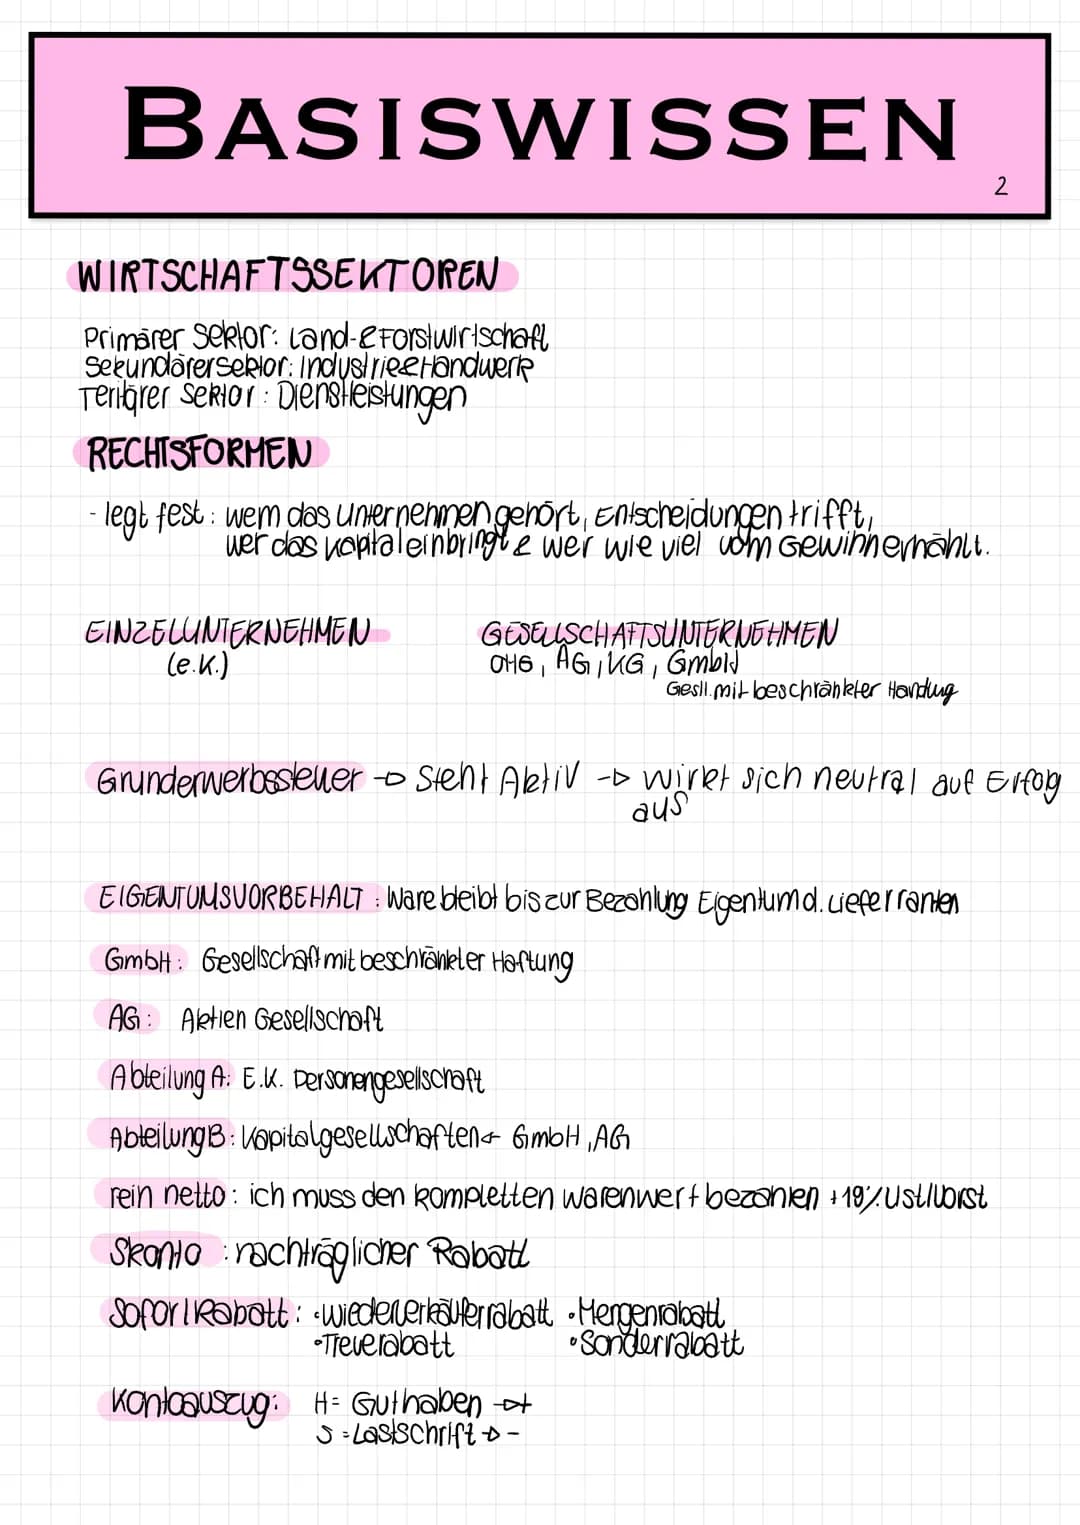 BASISWISSEN
2
WIRTSCHAFTSSEKTOREN
Primärer Sektor: Land-&Forstwirtschaft
Sekundärer Sektor: Industrie&Handwerk
Tertiärer Sektor: Dienstleistungen
RECHTSFORMEN
- legt fest: wem das Unternehmen gehört, Entscheidungen trifft,
wer das Kapital einbringt & wer wie viel vom Gewinn erhählt.
EINZELUNTERNEHMEN GESELLSCHAFTSUNTERNEHMEN
(e.K.) OHG, AG, KG, GmbH
Gesll. mit beschränkter Handlug
Grunderwerbssteuer → Steht Aktiv → wirkt sich neutral auf Erfolg
aus
EIGENTUMSVORBEHALT: Ware bleibt bis zur Bezahlung Eigentum d. Lieferranten
GmbH: Gesellschaft mit beschränkter Haftung
AG: Aktien Gesellschaft
Abteilung A: E.K. Personengesellschaft
Abteilung B: Kapitalgesellschaften ← GmbH, AG
rein netto: ich muss den kompletten Warenwert bezahlen +19% Ust/Vorst
Skonto: nachträglicher Rabatt
Sofort Rabatt: •Wiederverkäuferrabatt •Mengenrabatt
•Treuerabatt •Sonderrabatt
Kontoauszug: H= Guthaben → +
S = Lastschrift → -